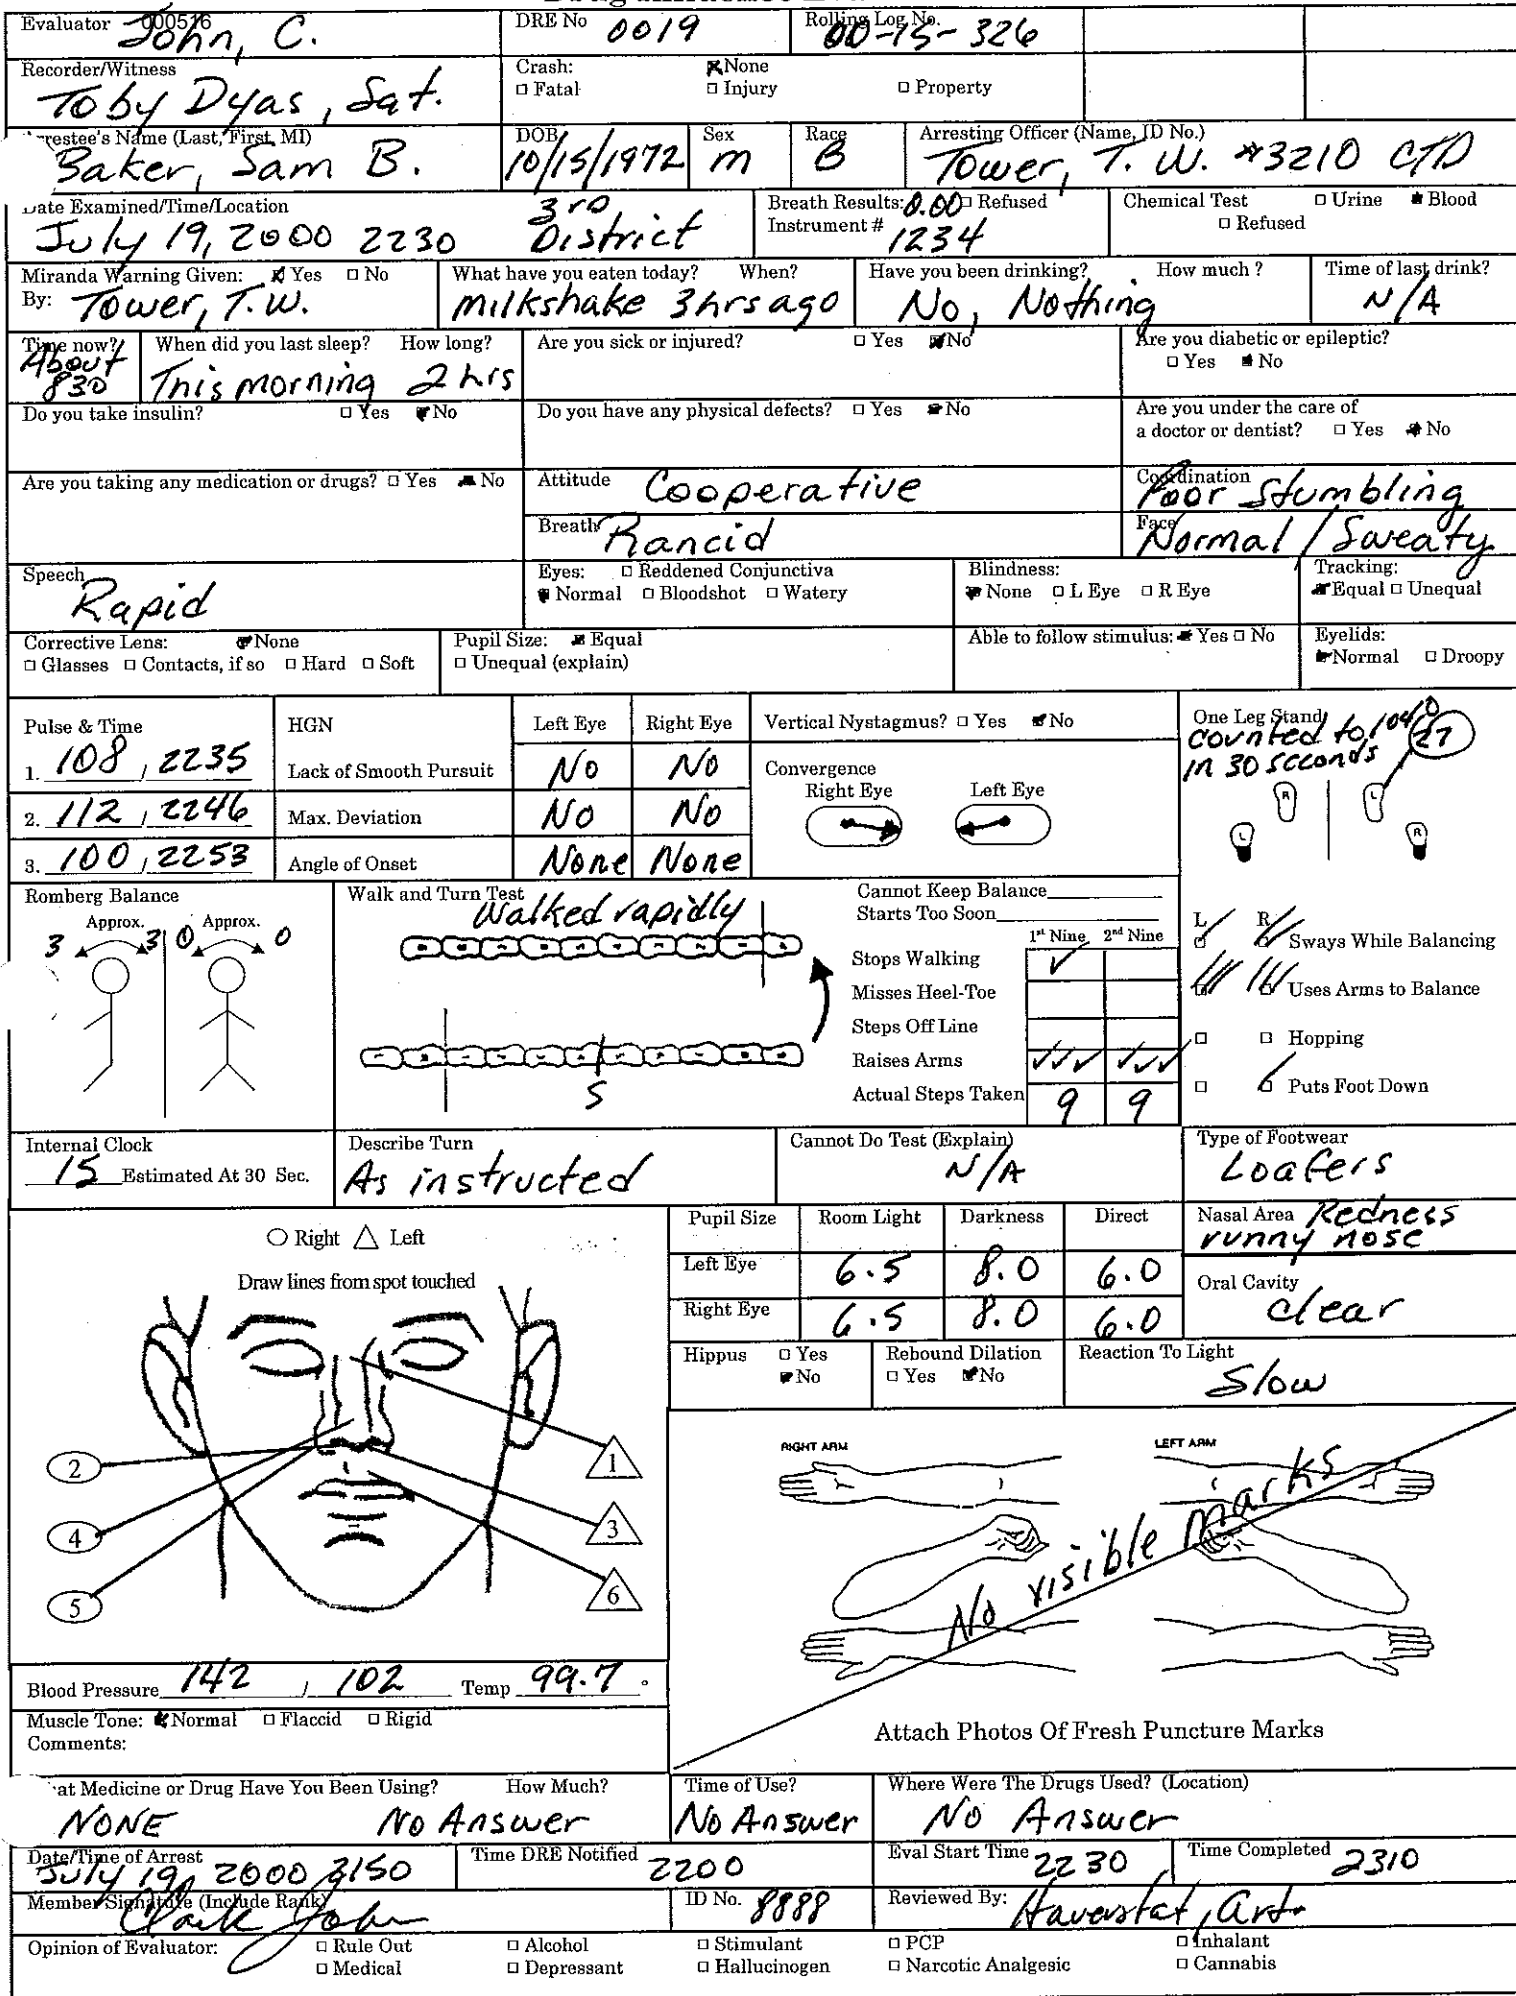 Evaluator 000516 John, C.
DRE No 0019
Rolling Log No. 00-15-326
Recorder/Witness Toby Dyas, Sgt.
Crash: None
Fatal Injury Property
Arrestee's Name (Last, First, MI) Baker, Sam B.
DOB 10/15/1972
Sex M
Race B
Arresting Officer (Name, ID No.) Tower, T. W. #3210 CTD
Date Examined/Time/Location July 19, 2000 2230 3rd District
Breath Results: 0.00 Refused
Instrument # 1234
Chemical Test Urine Blood
Refused
Miranda Warning Given: Yes No
By: Tower, T.W.
What have you eaten today? When?
milkshake 3hrs ago
Have you been drinking? How much ?
No, Nothing
Time of last drink?
N/A
Time now? About 830
When did you last sleep? How long?
This morning 2 hrs
Are you sick or injured? Yes No
Are you diabetic or epileptic?
Yes No
Do you take insulin? Yes No
Do you have any physical defects? Yes No
Are you under the care of
a doctor or dentist? Yes No
Are you taking any medication or drugs? Yes No
Attitude Cooperative
Coordination Poor Stumbling
Breath Rancid
Face Normal / Sweaty
Speech Rapid
Eyes: Reddened Conjunctiva
Normal Bloodshot Watery
Blindness:
None L Eye R Eye
Tracking:
Equal Unequal
Corrective Lens: None
Glasses Contacts, if so Hard Soft
Pupil Size: Equal
Unequal (explain)
Able to follow stimulus: Yes No
Eyelids:
Normal Droopy
Pulse & Time
1. 108 , 2235
2. 112 , 2246
3. 100 , 2253
HGN Left Eye Right Eye
Lack of Smooth Pursuit No No
Max. Deviation No No
Angle of Onset None None
Vertical Nystagmus? Yes No
Convergence
Right Eye Left Eye
One Leg Stand
counted to 1040 27
in 30 seconds
R L
L R
Romberg Balance
Approx. Approx.
3 3 0 0
Walk and Turn Test
Walked rapidly
S
Cannot Keep Balance
Starts Too Soon
1st Nine 2nd Nine
Stops Walking ✓
Misses Heel-Toe
Steps Off Line
Raises Arms ✓✓✓ ✓✓✓
Actual Steps Taken 9 9
L R
Sways While Balancing
Uses Arms to Balance
Hopping
Puts Foot Down
Internal Clock
15 Estimated At 30 Sec.
Describe Turn
As instructed
Cannot Do Test (Explain)
N/A
Type of Footwear
Loafers
Right Left
Draw lines from spot touched
2
4
5
1
3
6
Pupil Size Room Light Darkness Direct
Left Eye 6.5 8.0 6.0
Right Eye 6.5 8.0 6.0
Nasal Area Redness
runny nose
Oral Cavity
clear
Hippus Yes
No
Rebound Dilation
Yes No
Reaction To Light
Slow
RIGHT ARM LEFT ARM
No visible marks
Attach Photos Of Fresh Puncture Marks
Blood Pressure 142 / 102 Temp 99.7 °
Muscle Tone: Normal Flaccid Rigid
Comments:
at Medicine or Drug Have You Been Using? How Much?
NONE No Answer
Time of Use?
No Answer
Where Were The Drugs Used? (Location)
No Answer
Date/Time of Arrest
July 19, 2000 2150
Time DRE Notified 2200
Eval Start Time 2230
Time Completed 2310
Member Signature (Include Rank) Clark John
ID No. 8888
Reviewed By: Haverstat, Art.
Opinion of Evaluator: Rule Out Alcohol Stimulant PCP Inhalant
Medical Depressant Hallucinogen Narcotic Analgesic Cannabis